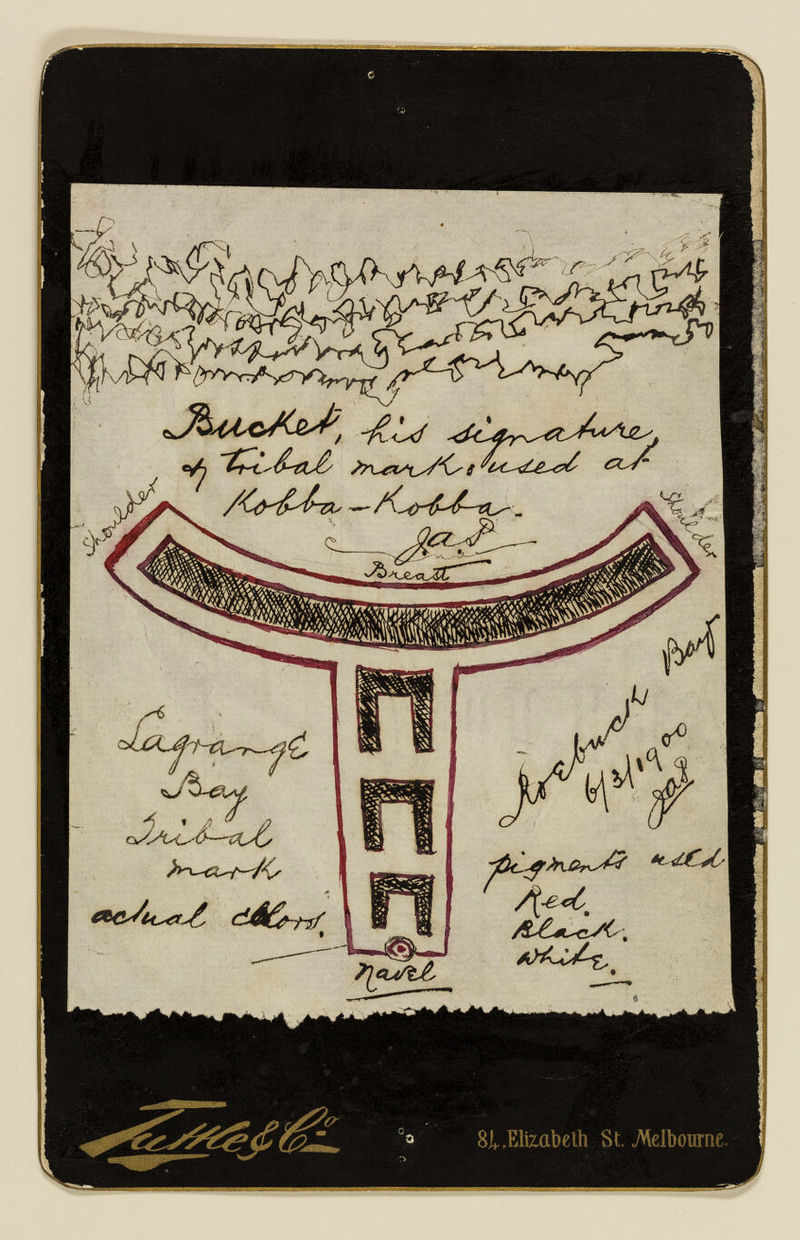 Bucket, his signature,
& tribal mark, used at
Kobba-Kobba.
J.a.P
Shoulder
Breast
Shoulder
Lagrange
Bay
Tribal
mark
actual colors.
Roebuck Bay
6/3/1900
JaP
pigments used
Red.
Black.
White.
Navel
Tuttle & Co
84, Elizabeth St. Melbourne.